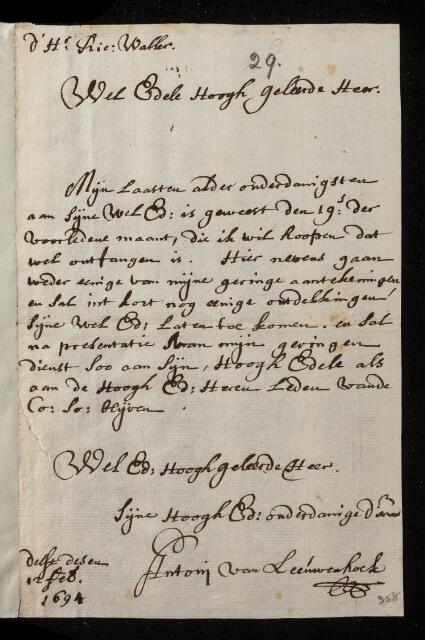 d'Hr Ric: Waller.
29.
Wel Edele Hoogh geleerde Heer.
Mijn Laasten alder onderdanigsten
aan Sijne Wel Ed: is geweest den 19e der
voorledene maant, die ik wil hoopen dat
wel ontfangen is. Hier nevens gaan
weder eenige van mijne geringe aantekeningen
en sal int kort nog eenige ontdekkingen
Sijne Wel Ed: Laten toe komen. en sal
na presentatie van mijn geringen
dienst soo aan Sijn, Hoogh Edele als
aan de Hoogh Ed: Heren Leden vande
Co: So: blijven.
Wel Ed: Hoogh geleerde Heer.
Sijne Hoogh Ed: onderdanige
Antonj van Leeuwenhoek
Delft desen
feb.
1694